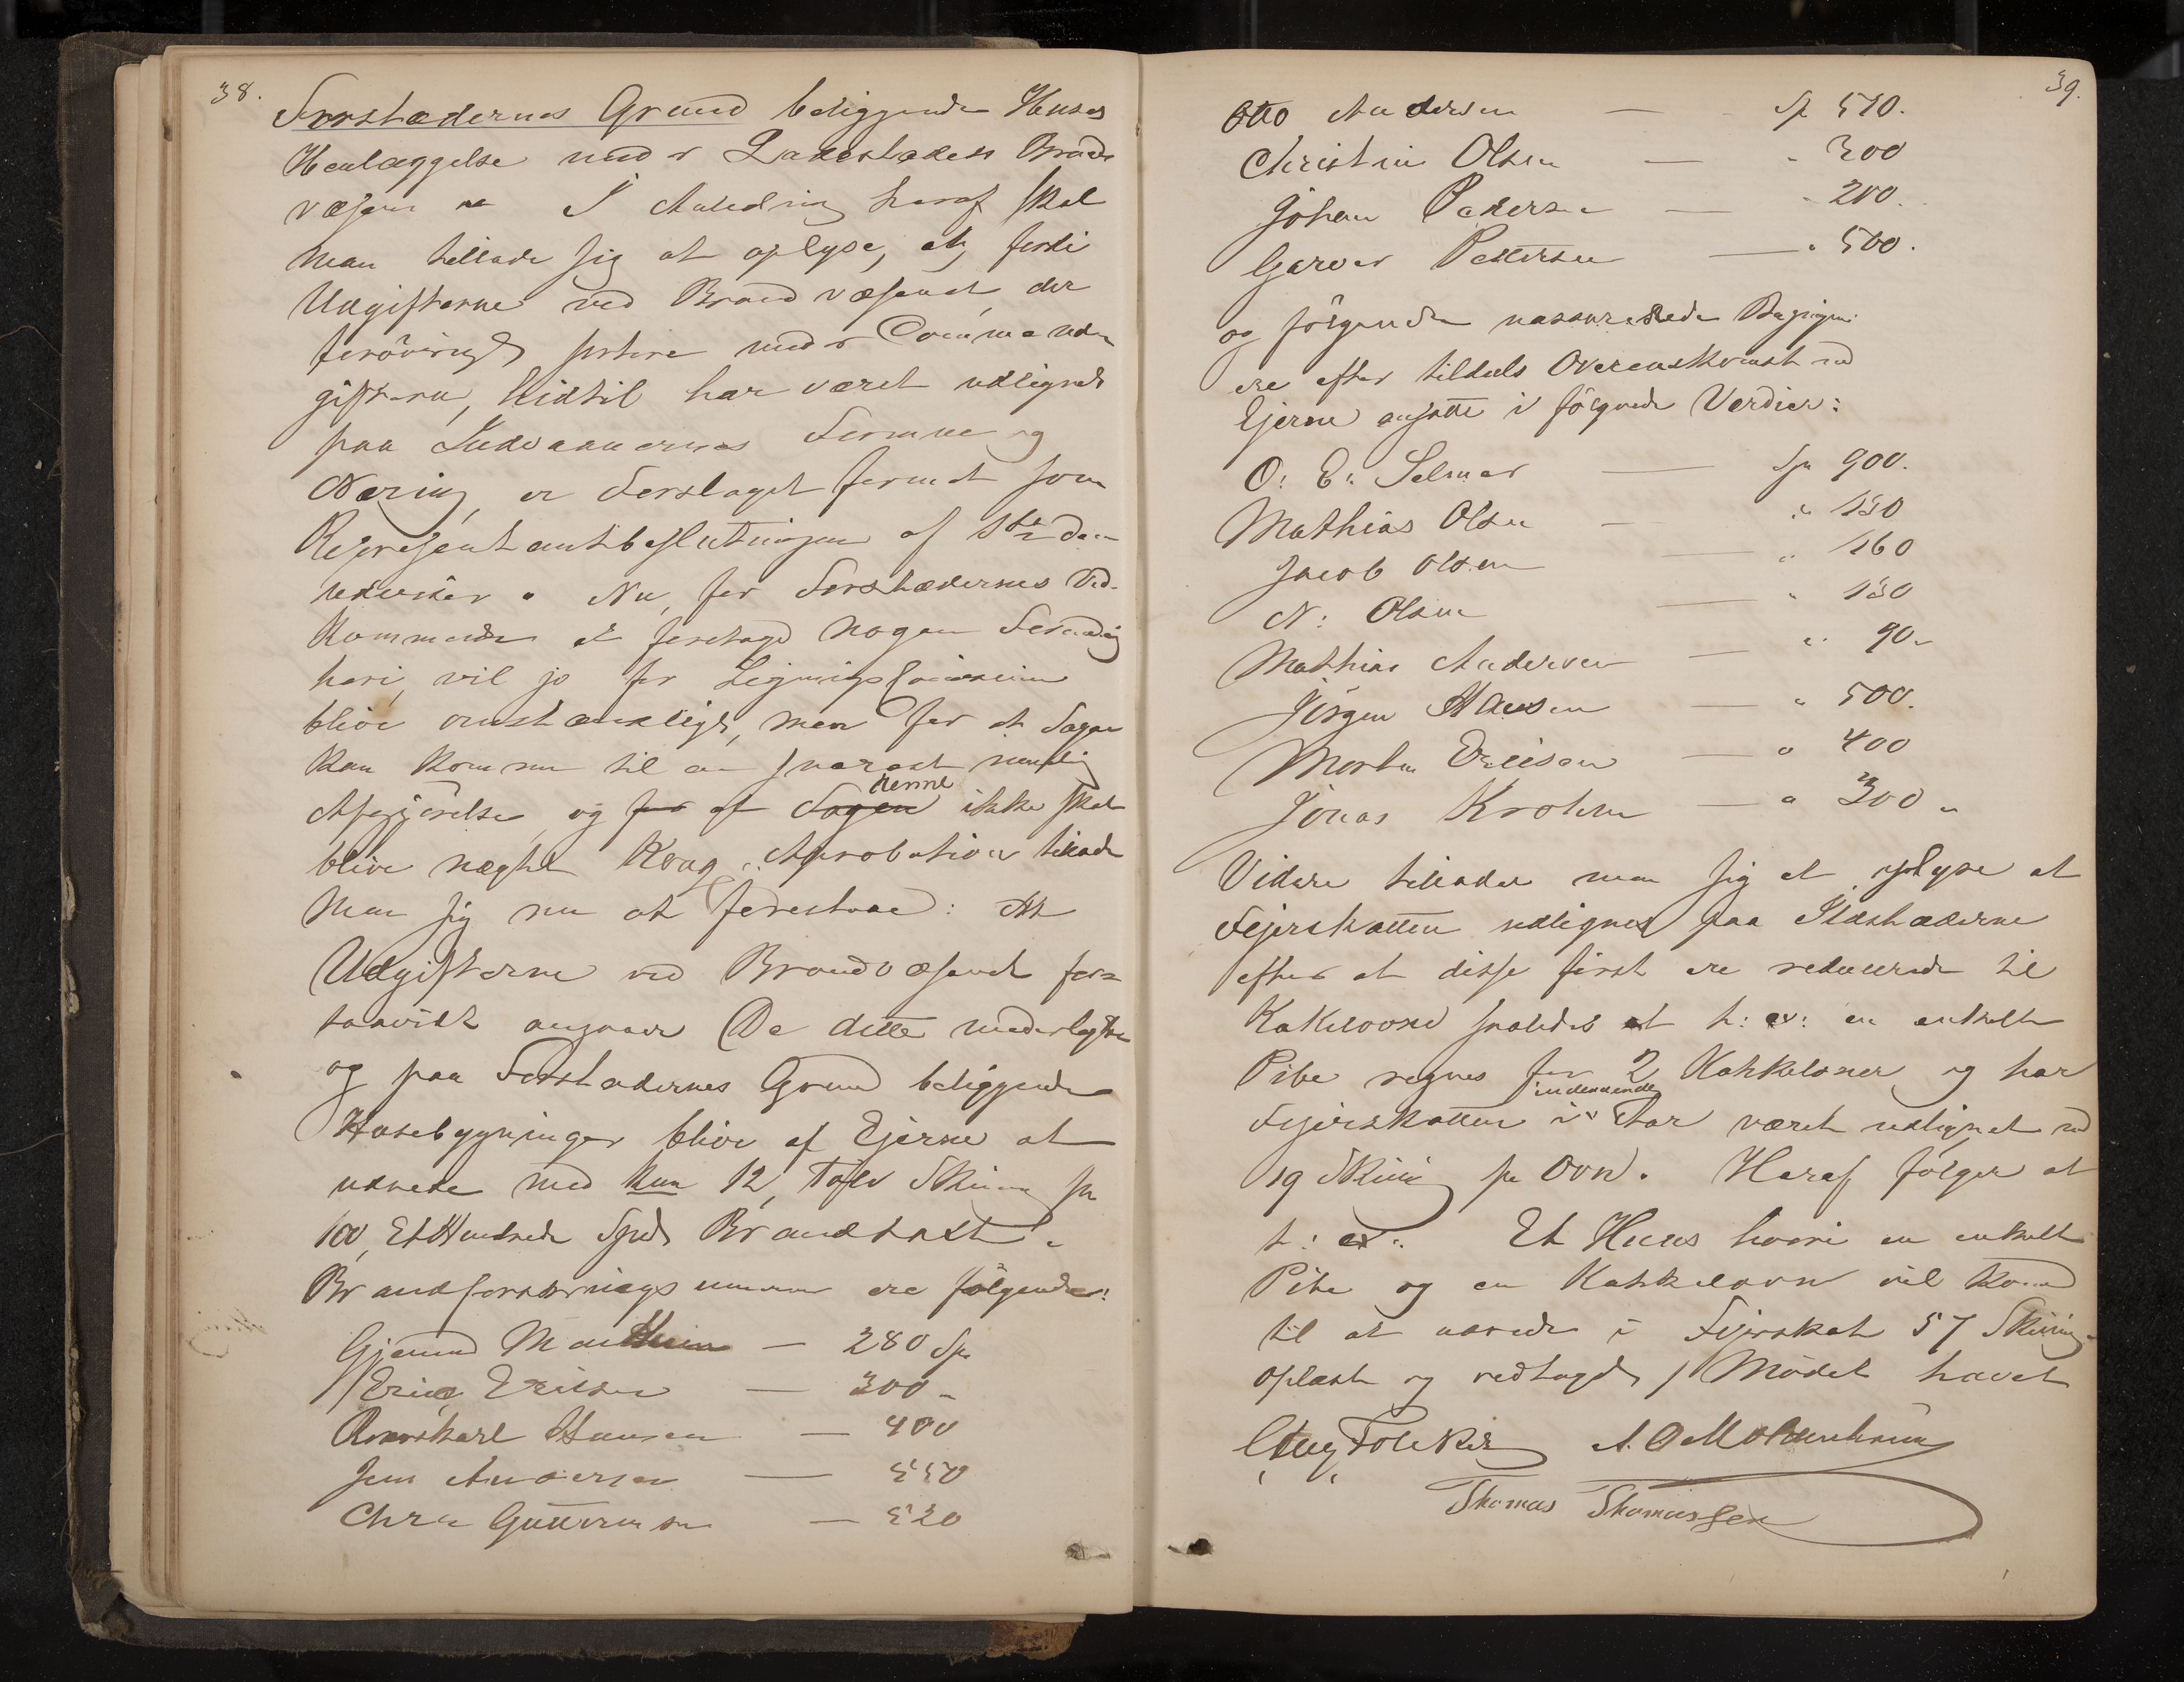 38.
Forstædernes Grund beliggende Huses
Henlæggelse under Ladestadens Brand
væsen. I Anledning heraf skal
man tillade sig at oplyse, at, fordi
Udgifterne ved Brandvæsenet, der
forøvrigt sortere under Communeud-
gifterne, hidtil har været udlignet
paa Indvaanernes Formue og
Næring, er Forslaget formet som
Repræsentantbeslutningen af
udviser. Nu, for Forstædernes Ved-
kommende at foretage nogen Forandring
heri, vil jo for Ligningscommissionen
blive omstændeligt, men for at Sagen
kan komme til en snarest mulig
Afgjørelse, og for at Sagen denne ikke skal
blive nægtet Kong. Approbation tillader
man sig nu at foreslaae: At
Udgifterne ved Brandvæsenet for-
saavidt angaaer De dette underlagte
og paa Forstædernes Grund beliggende
Husebygninger blive af Ejerne at
udrede med kun 12, Tolv Skilling pr
100, Et Hundrede Spds Brandtaxt.
Brandforsikringssummerne ere følgende:
Gjermund — 280 Sp.
Eric Ericsen — 300 "
Hansen — 400
Jens Andersen — 550
Chr. Guttormsen — 520
39.
Otto Andersen — Sp 510.
Christian Olsen — " 300
Johan Pedersen — " 200.
Pettersen — " 500.
og følgende uassurerede Bygninger
ere efter tildels Overenskomst med
Ejerne ansatte i følgende Verdier:
O: E: Selmer — Sp 900.
Mathias Olsen — " 150
Jacob Olsen — " 160
N: Olsen — " 150
Mathias Andersen — " 90 "
Jörgen Hansen — " 500.
Morten Ericsen — " 400
Jonas Krohn — " 300 "
Videre tillader man sig at oplyse at
Fejerskatten udlignes paa Ildstæderne
efter at disse først ere reducerede til
Kakelovne saaledes at t: ex: en enkelt
Pibe regnes for 2 Kakkelovner, og har
Fejerskatten i indeværende Aar været udlignet med
19 Skilling pr Ovn. Heraf følger at
t: ex: Et Huus hvori en enkelt
Pibe og en Kakkelovn vil komme
til at udrede i Fejerskat 57 Skilling.
Oplæst og vedtaget / Mødet hævet
A. O Moldenhauer
Thomas Thomassen